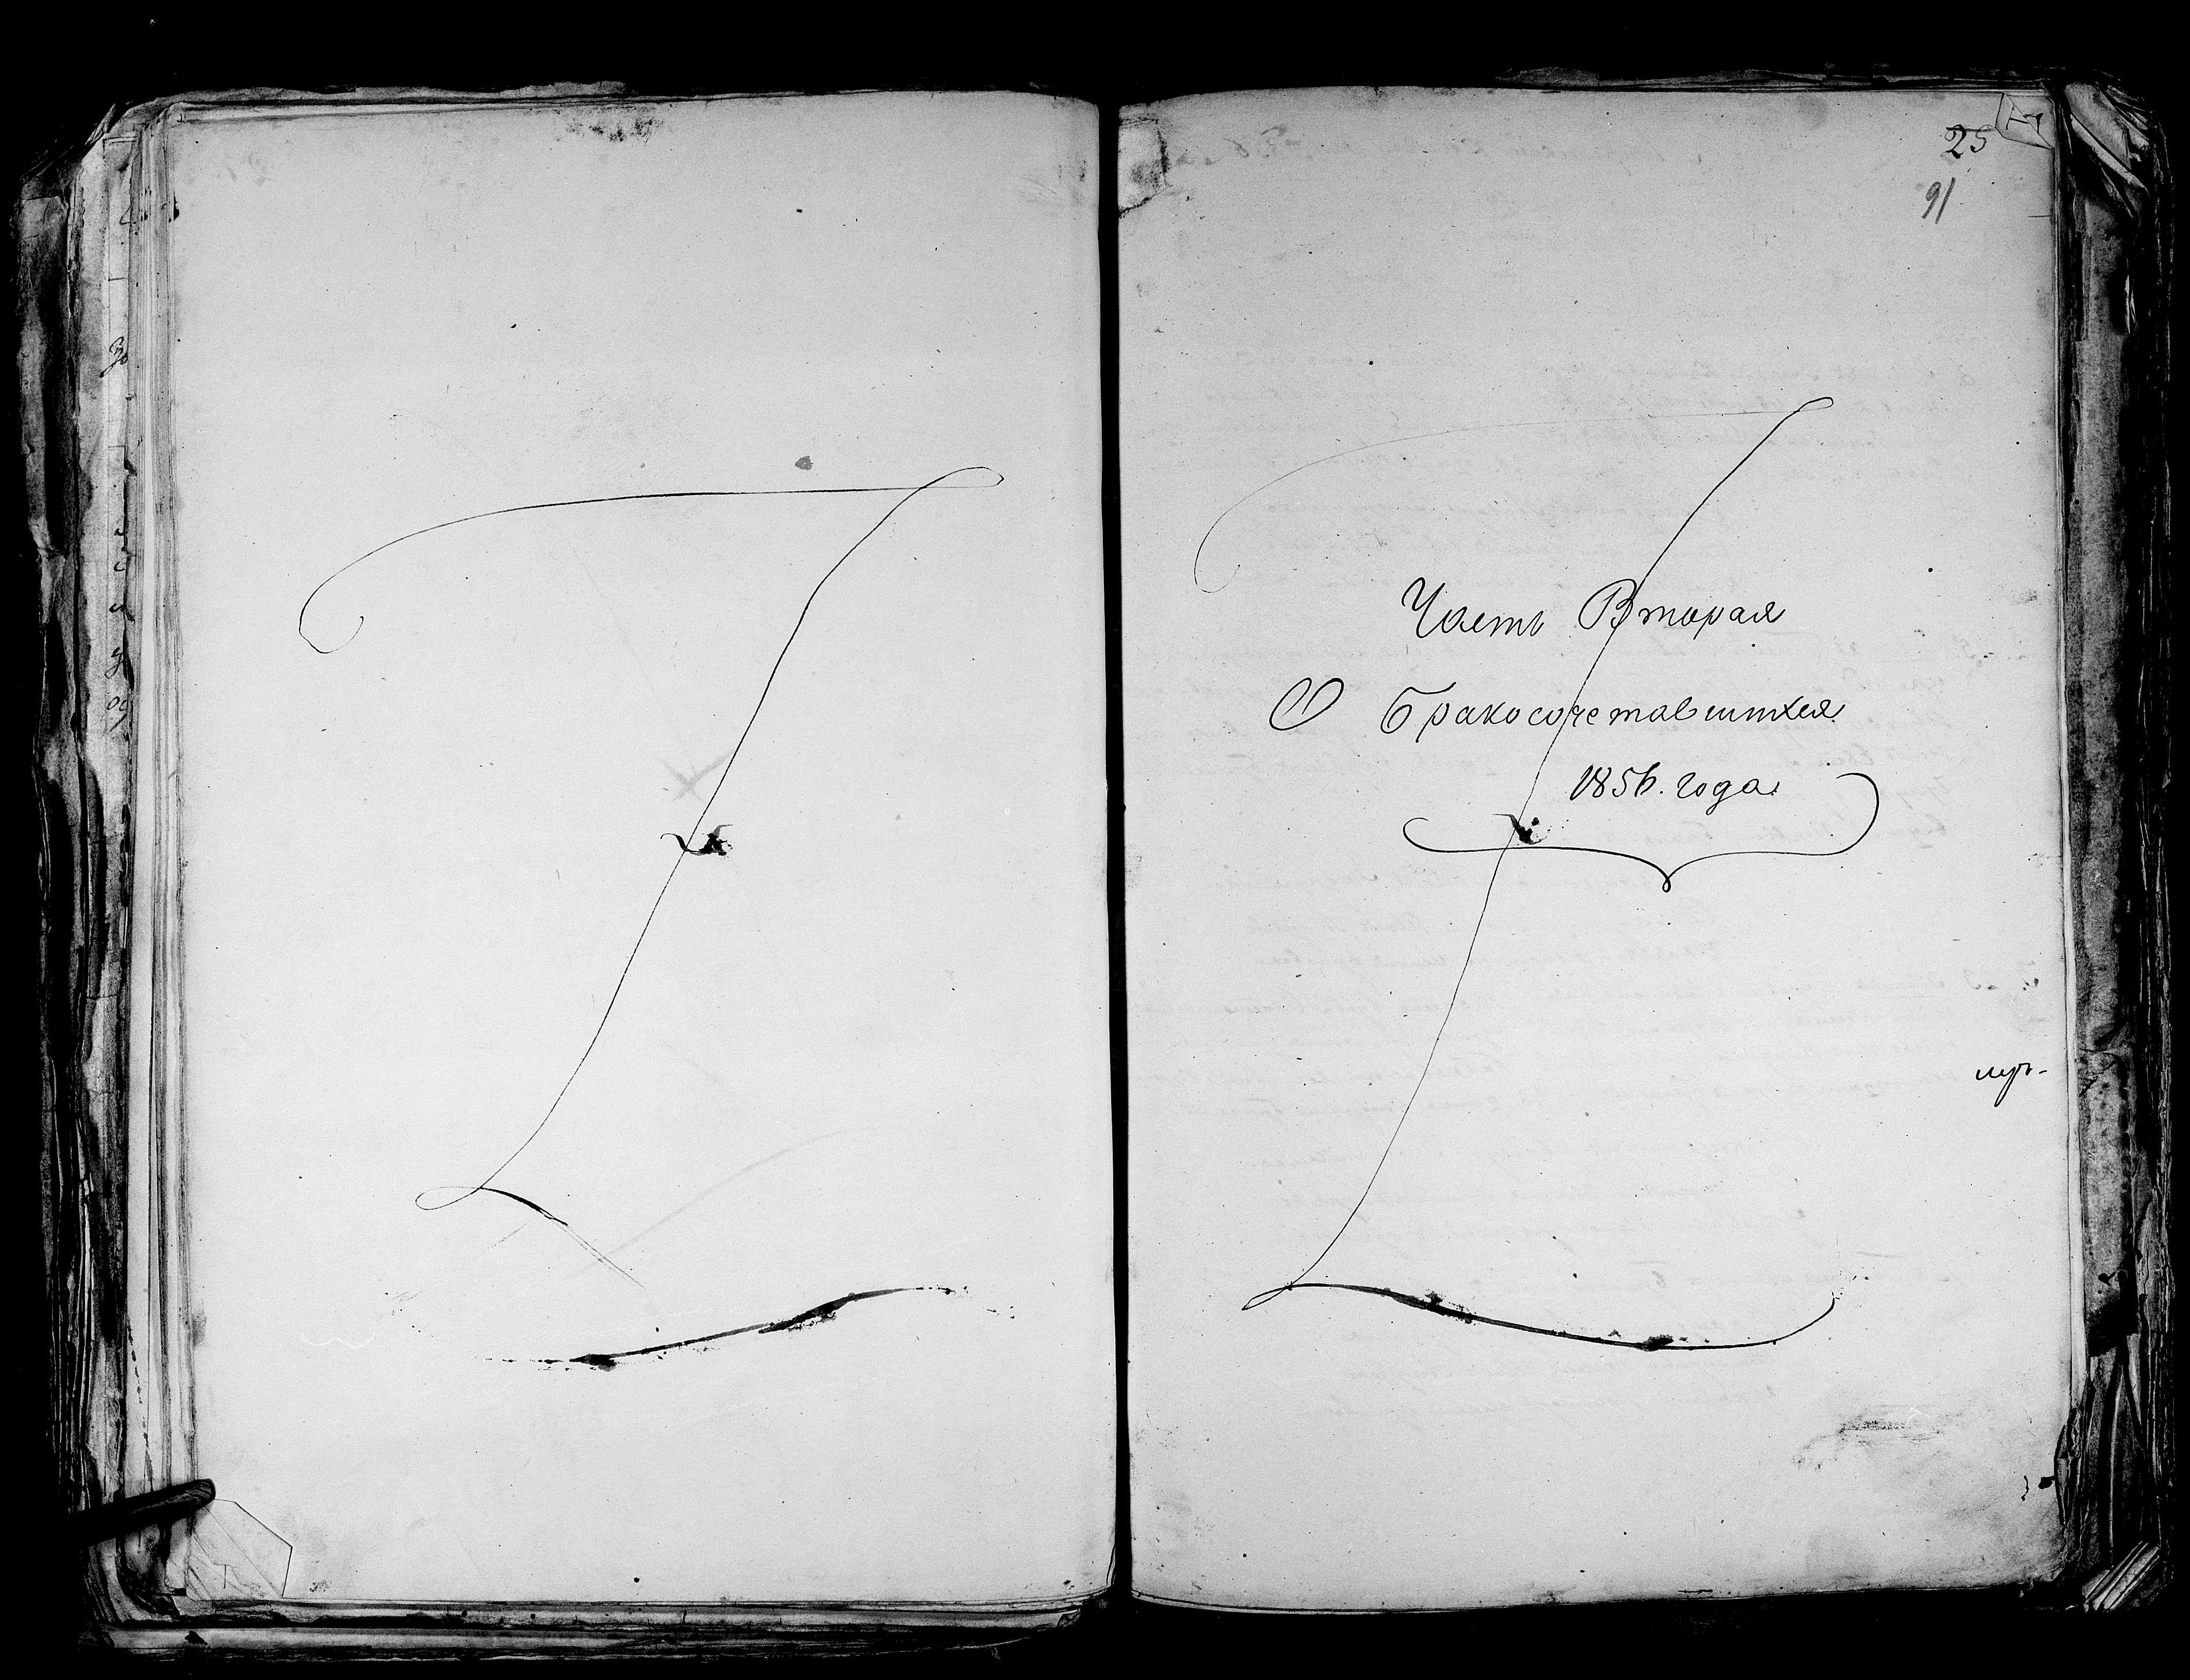 25
91
Часть Вторая
О бракосочетавшихся
1856. года